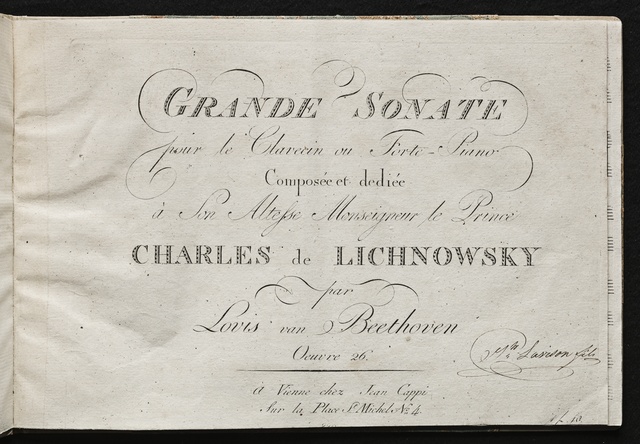 GRANDE SONATE
pour le Clavecin ou Forte-Piano
Composée et dediée
à Son Altesse Monseigneur le Prince
CHARLES de LICHNOWSKY
par
Lovis van Beethoven
Oeuvre 26.
à Vienne chez Jean Cappi
Sur la Place St Michel No 4.